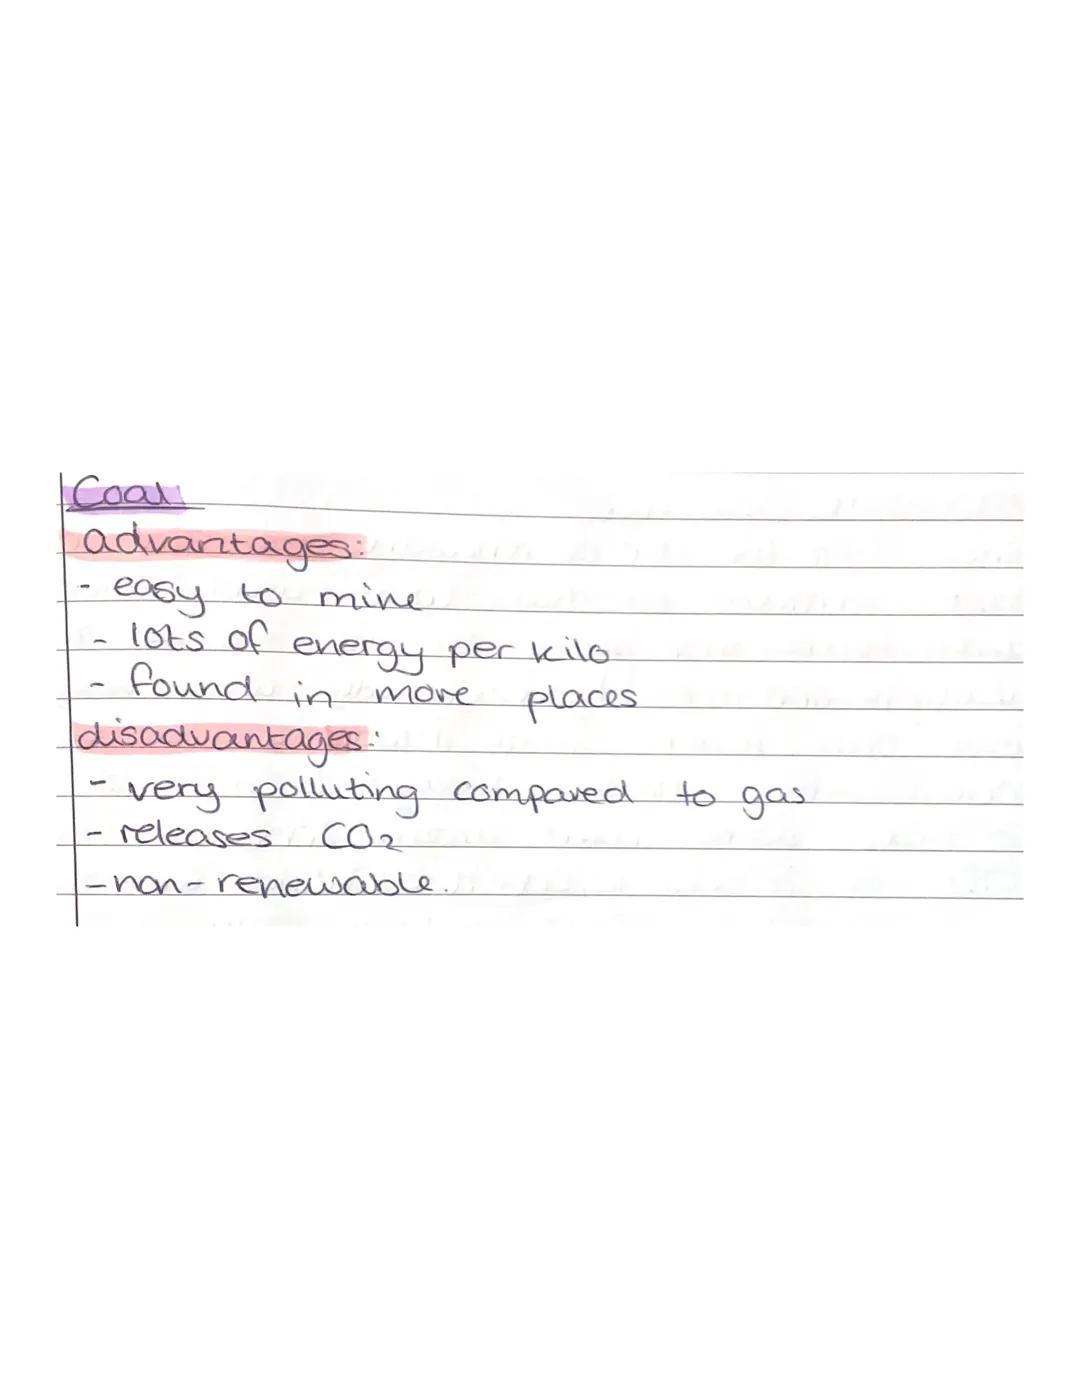 Coal
advantages:
- easy to mine
- lots of energy per kilo
- found in more places
disadvantages:
- very polluting compared to gas
- releases CO2
- non-renewable.